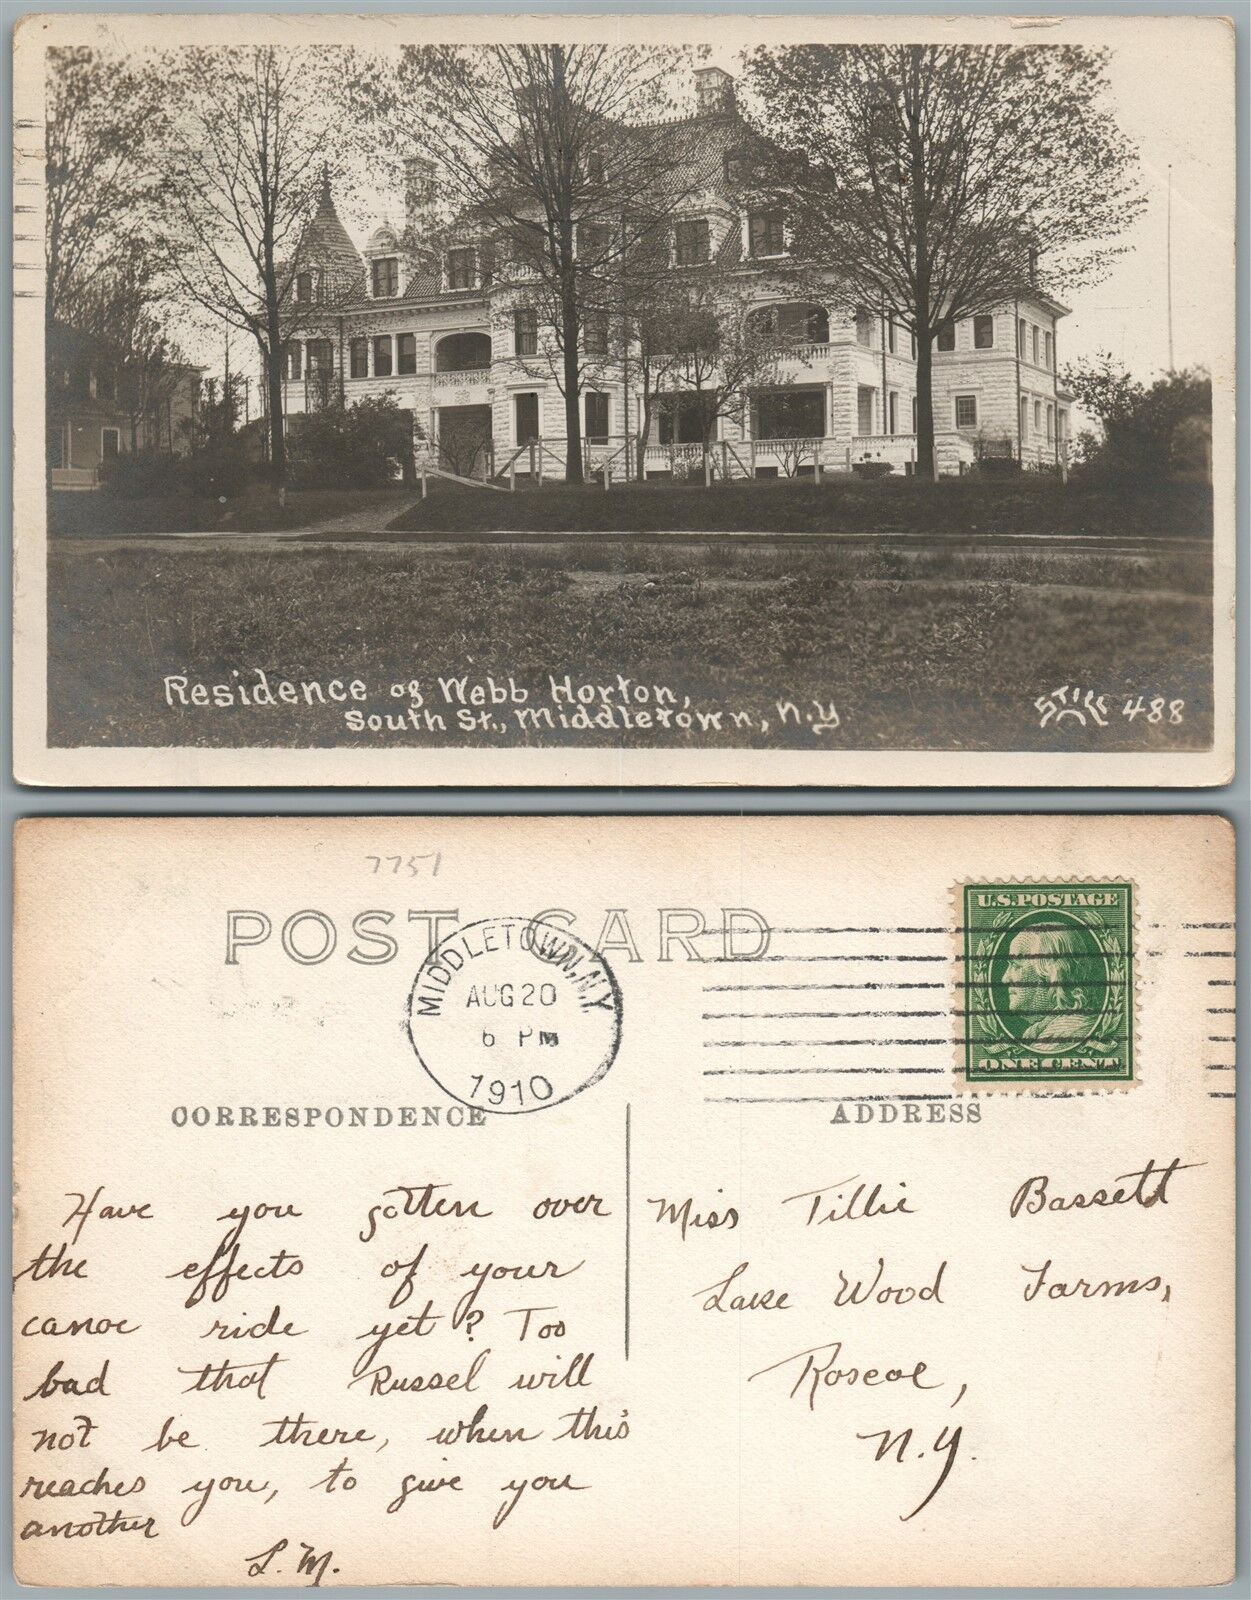 Residence of Webb Horton,
South St., Middletown, N.Y.
STILL 488
7751
POST CARD
MIDDLETOWN, N.Y.
AUG 20
6 PM
1910
U.S. POSTAGE
ONE CENT
CORRESPONDENCE
ADDRESS
Have you gotten over
the effects of your
canoe ride yet? Too
bad that Russel will
not be there, when this
reaches you, to give you
another
L. M.
Miss Tillie Bassett
Lake Wood Farms,
Roscoe,
N.Y.